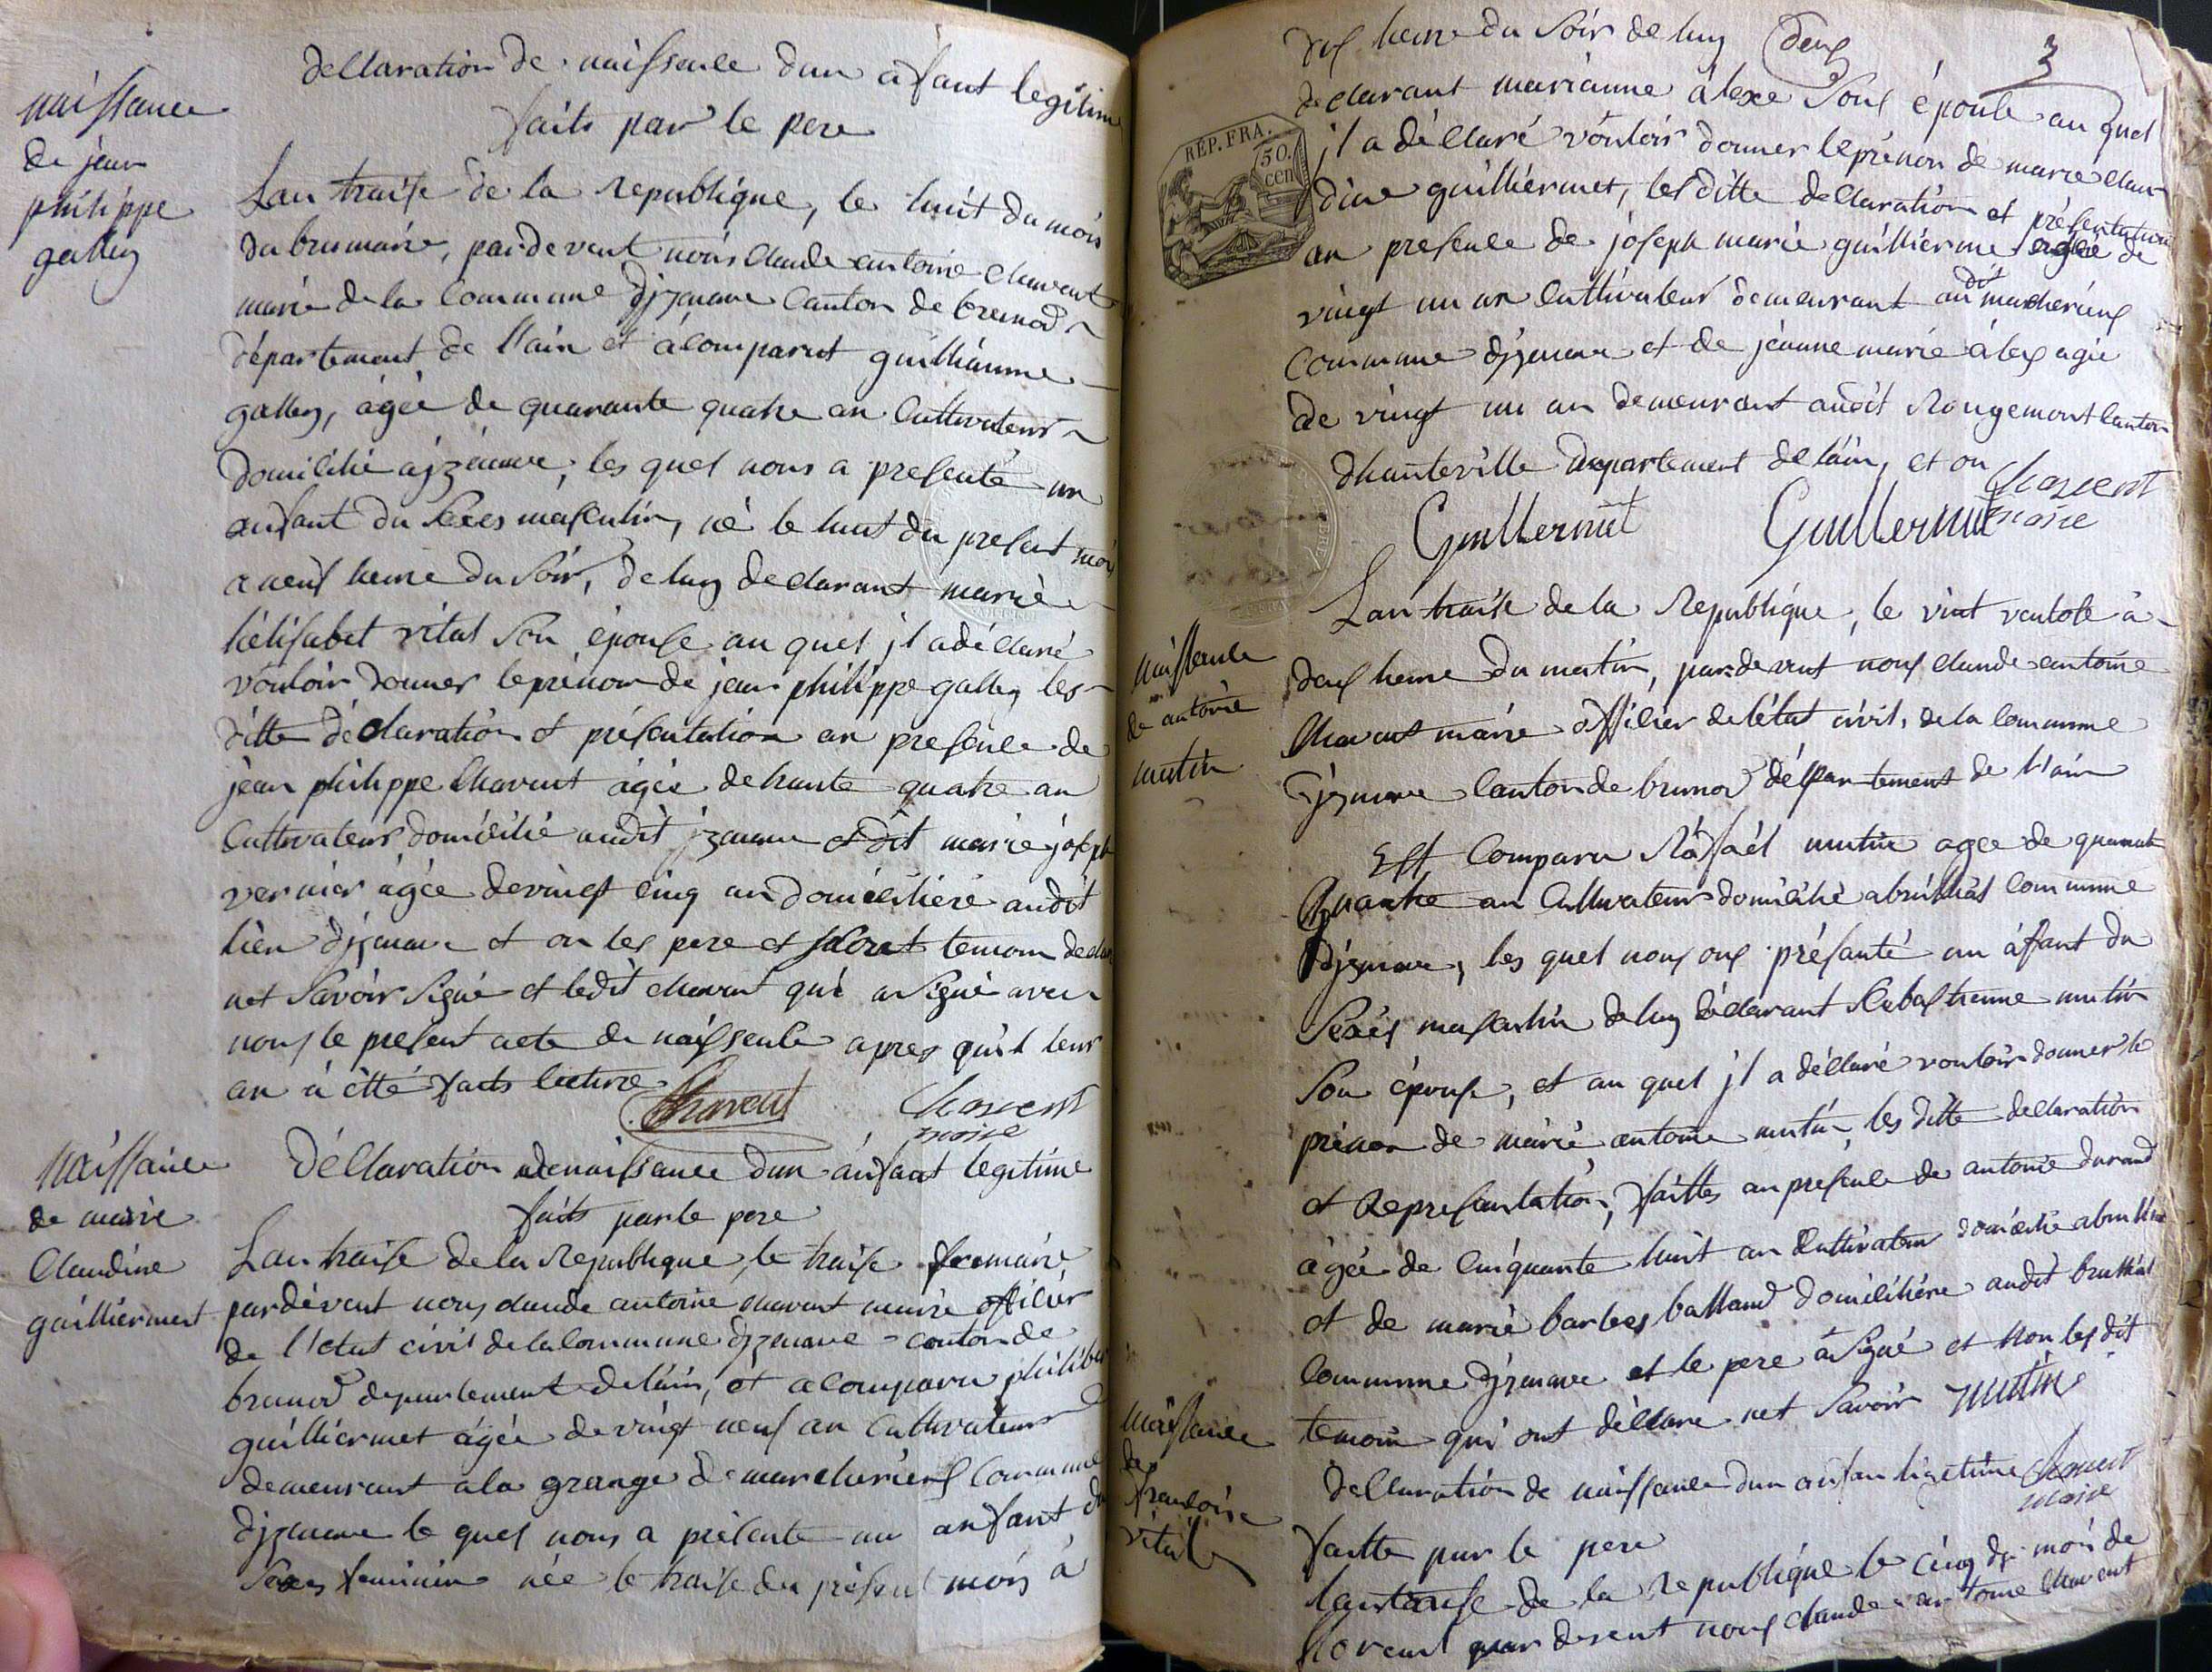 naissance
de jean
philippe
galley
dellaration de naissence dun anfant legitime
faits par le pere
Lan traise de la republique, le huit du mois
du brumaire, par devent nous claude antoine chavent
maire de la commune djzenave canton de brenod
département de l'ain et a comparut guilliaume
galley, âgée de quarante quatre an Cultivateur
domicilié a jzenave, les quel nous a presenté un
anfant du sexes masculin, né le huit du present mois
a neuf heure du soir, de luy declarant marie
hélisabet vital son épouse au quel jl a déclaré
vouloir donner le prénom de jean philippe galley les
ditte déclaration et présentation an presence de
jean philippe Chavent âgée de trante quatre an
Cultivateur domicilié audit jzenave et dit marie joseph
vernier âgée de vingt cinq an domicilière audit
lieu djzenave et on les pere et temoin declaré
net savoir signé et ledit chavent qui a signé avec
nous le present acte de naissence apres quil leur
an a étté faits lecture
Chavent
Chavent
maire
naissance
de marie
Claudine
guilliermet
Déllaration de naissance dun anfant legitime
faits par le pere
Lan traise de la republique, le traise fremaire
pardevent nous claude antoine chavent maire officier
de l'etat civil de la commune djzenave canton de
brenod departement de l'ain, et a comparu philiber
guilliermet âgée de vingt neuf an Cultivateur
demeurant a la grange de marcherieus Commune
djzenave le quel nous a présenté un anfant du
sexes feminin née le traise du présent mois à
dix heure du soir de luy deux 3
declarant marianne alexe sous épouse au quel
jl a déllaré vouloir donner le prénom de marie clau
dine guilliermet, les ditte dellaration et présentation
an presence de joseph marie guillierme agée de
vingt un an cultivateur demeurant audit marcherieus
Commune djzenave et de jeanne marie alex agée
de vingt un an demeurant audit Rougemont canton
dhauteville departement de lain, et on
RÉP. FRA.
50.
cen
Guillermet Guillermet
Chavent
maire
naissence
de antoine
mutin
Lan traise de la Republique, le vint ventose a
deux heure du matin, pardevent nous claude antoine
Chavent maire officier de l'état civil, de la commune
djzenave Canton de brenod département de l'ain
Est Comparu Rafaél mutin agée de quarante
Quatre an Cultivateur domicilié a brulliat Commune
djzenave, les quel nous ous présanté un anfant du
sexés masculin de luy déclarant sebastienne mutin
son épouse, et au quel jl a déllaré vouloir donner le
prénon de marié antoine mutin, les ditte dellaration
et Represantation, faittes an presence de antoine durand
âgée de Cinquante huit an Cultivateur domicilié a brulliat
et de marié barbes balland domicilière audit brulliat
Commune djzenave et le pere a signé et non les dit
temoin qui ont déllare net savoir mutin
Chavent
maire
naissance
de
francoise
vital
dellaration de naissance dun anfan ligetime
faitte par le pere
lan traise de la republique le cinq du mois de
floreal par devent nous claude antoine chavent